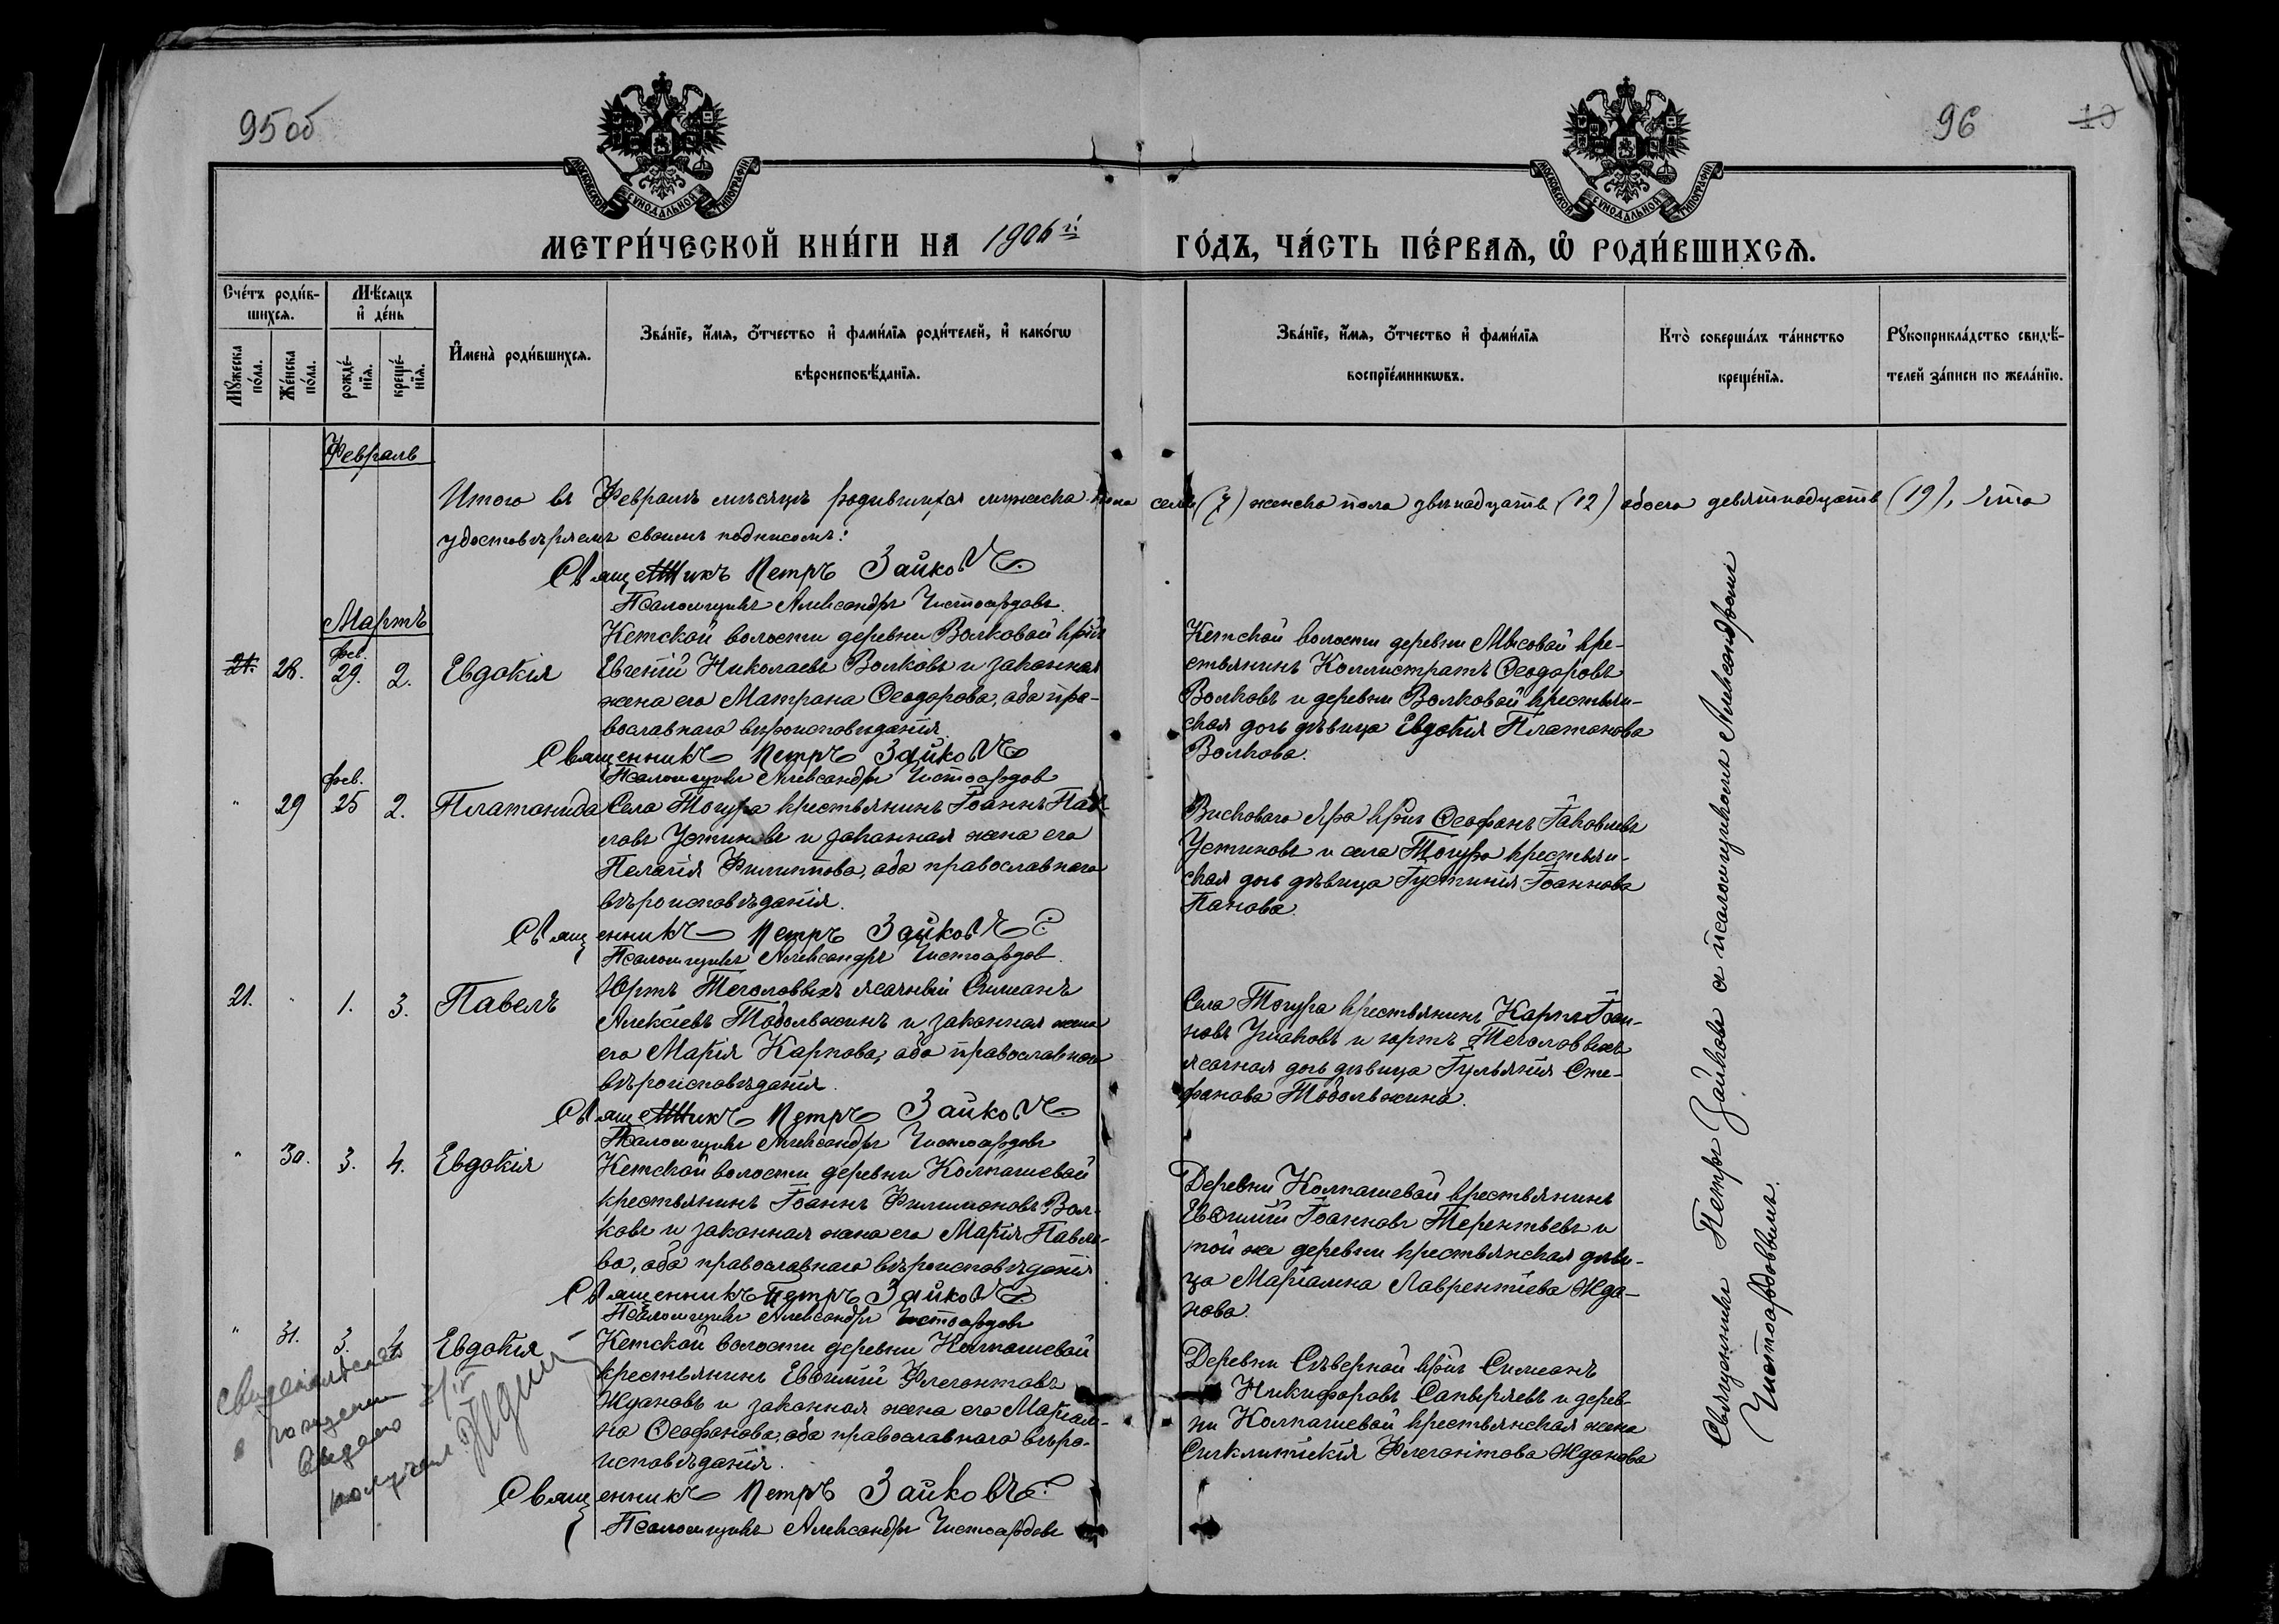 95об
96
10
МОСКОВСКОЙ СѴНОДАЛЬНОЙ ТИПОГРАФІИ
МОСКОВСКОЙ СѴНОДАЛЬНОЙ ТИПОГРАФІИ
МЕТРИ́ЧЕСКОЙ КНИ́ГИ НА 1906й
ГО́ДЪ, ЧА́СТЬ ПЕ́РВАѦ, Ѡ҆ РОДИ́ВШИХСѦ.
Сче́тъ роди́в-
шихсѧ.
Мѣ́сяцъ
и҆ де́нь
Мꙋ́жеска
по́ла.
Же́нска
по́ла.
рожде́-
нїѧ.
креще́-
нїѧ.
И҆мена̀ роди́вшихсѧ.
Зва́нїе, и҆́мѧ, ѻ҆́тчество и҆ фами́лїѧ роди́телей, и҆ како́гѡ
вѣроисповѣ́данїѧ.
Зва́нїе, и҆́мѧ, ѻ҆́тчество и҆ фами́лїѧ
воспрїе́мникѡвъ.
Кто̀ соверша́лъ та́инство
креще́нїѧ.
Рꙋкоприкла́дство свидѣ́-
телей за́писи по жела́нїю.
Февраль
Итого въ Февралѣ мѣсяцѣ родившихся мужеска пола семь (7) женска пола двѣнадцать (12) обоего девятнадцать (19), что
удостовѣряемъ своимъ подписомъ:
Священникъ Петръ Зайковъ
Псаломщикъ Александръ Чистосердовъ.
Мартъ
21. 28. фев. 29. 2. Евдокія
Кетской волости деревни Волковой кр̃нъ
Евгеній Николаевъ Волковъ и законная
жена его Матрона Ѳеодорова, оба пра-
вославнаго вѣроисповѣданія.
Священникъ Петръ Зайковъ
Псаломщикъ Александръ Чистосердов
Кетской волости деревни Мысовой кре-
стьянинъ Каллистратъ Ѳеодоровъ
Волковъ и деревни Волковой крестьян-
ская дочь дѣвица Евдокія Платонова
Волкова.
" 29 фев. 25 2. Платонида
Села Тогура крестьянинъ Іоаннъ Пав-
ловъ Устиновъ и законная жена его
Пелагія Филиппова, оба православнаго
вѣроисповѣданія.
Священникъ Петръ Зайковъ
Псаломщикъ Александръ Чистосердов.
Яра кр̃нъ Ѳеофанъ Іаковлевъ
Устиновъ и села Тогура крестьян-
ская дочь дѣвица Іустинія Іоаннова
Панова.
21. " 1. 3. Павелъ
Юртъ Теголовыхъ ясачный Симеонъ
Алексіевъ Тобольжинъ и законная жена
его Марія Карпова, оба православнаго
вѣроисповѣданія.
Священникъ Петръ Зайковъ
Псаломщикъ Александръ Чистосердовъ
Села Тогура крестьянинъ Карпъ Іоан-
новъ Ушаковъ и юртъ Теголовыхъ
ясачная дочь дѣвица Іульянія Сте-
фанова Тобольжина.
" 30. 3. 4. Евдокія
Кетской волости деревни Колпашевой
крестьянинъ Іоаннъ Филимоновъ Вол-
ковъ и законная жена его Марія Павло-
ва, оба православнаго вѣроисповѣданія
Священникъ Петръ Зайковъ
Псаломщикъ Александръ Чистосердовъ
Деревни Колпашевой крестьянинъ
Евѳимій Іоанновъ Терентьевъ и
той же деревни крестьянская дѣви-
ца Маріамна Лаврентіева Жда-
нова.
" 31. 3. 4 Евдокія
Кетской волости деревни Колпашевой
крестьянинъ Евѳимій Флегонтовъ
Ждановъ и законная жена его Маріам-
на Ѳеофанова, оба православнаго вѣро-
исповѣданія.
Священникъ Петръ Зайковъ
Псаломщикъ Александръ Чистосердовъ
Деревни Сѣверной кр̃нъ Симеонъ
Никифоровъ Сапыряевъ и дерев-
ни Колпашевой крестьянская жена
Синклитікія Флегонтова Жданова
о рождении
получил
Священникъ Петръ Зайковъ съ псаломщикомъ Александромъ
Чистосердовымъ.